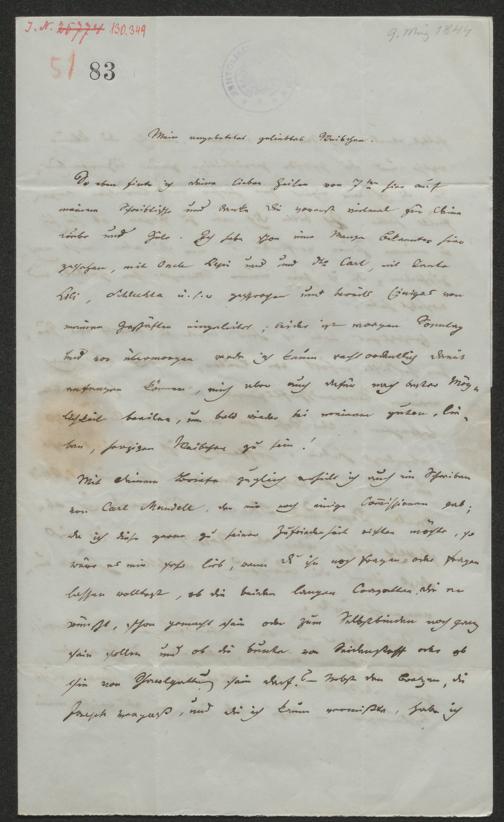 J. N. 25774 130.349
9. März 1844
51 83
Mein angebetetes geliebtes Weibchen.
So eben finde ich deine lieben Zeilen vom 7ten hier auf
meinem Schreibtische und danke dir tausend für deine
Liebe und Güte. Ich habe schon eine Menge Bekannte hier
gesehen, mit Onkel und und Carl, mit Tante
Lili, Schlechta u.s.w gesprochen und bereits Einiges von
meinen Geschäften eingeleitet; leider ist morgen Sonntag
und vor übermorgen werde ich kaum recht ordentlich damit
anfangen können, mich aber auch dafür nach bester Mög-
lichkeit beeilen, um bald wieder bei meinem guten, lie-
ben, herzigen Weibchen zu sein!
Mit deinem Briefe zugleich erhielt ich auch ein Schreiben
von Carl Mandell, der mir noch einige Commissionen gab;
da ich diese gerne zu seiner Zufriedenheit richten möchte, so
wäre es mir sehr lieb, wenn du ihn noch fragen oder fragen
lassen wolltest, ob die beiden langen Cravatten, die er
wünscht, schon gemacht sein oder zum Selbstbinden noch ganz
sein sollen und ob die bunte von Seidenstoff oder ob
sie von sein darf? – die
Joseph vergaß, und die ich kaum vermißte, habe ich